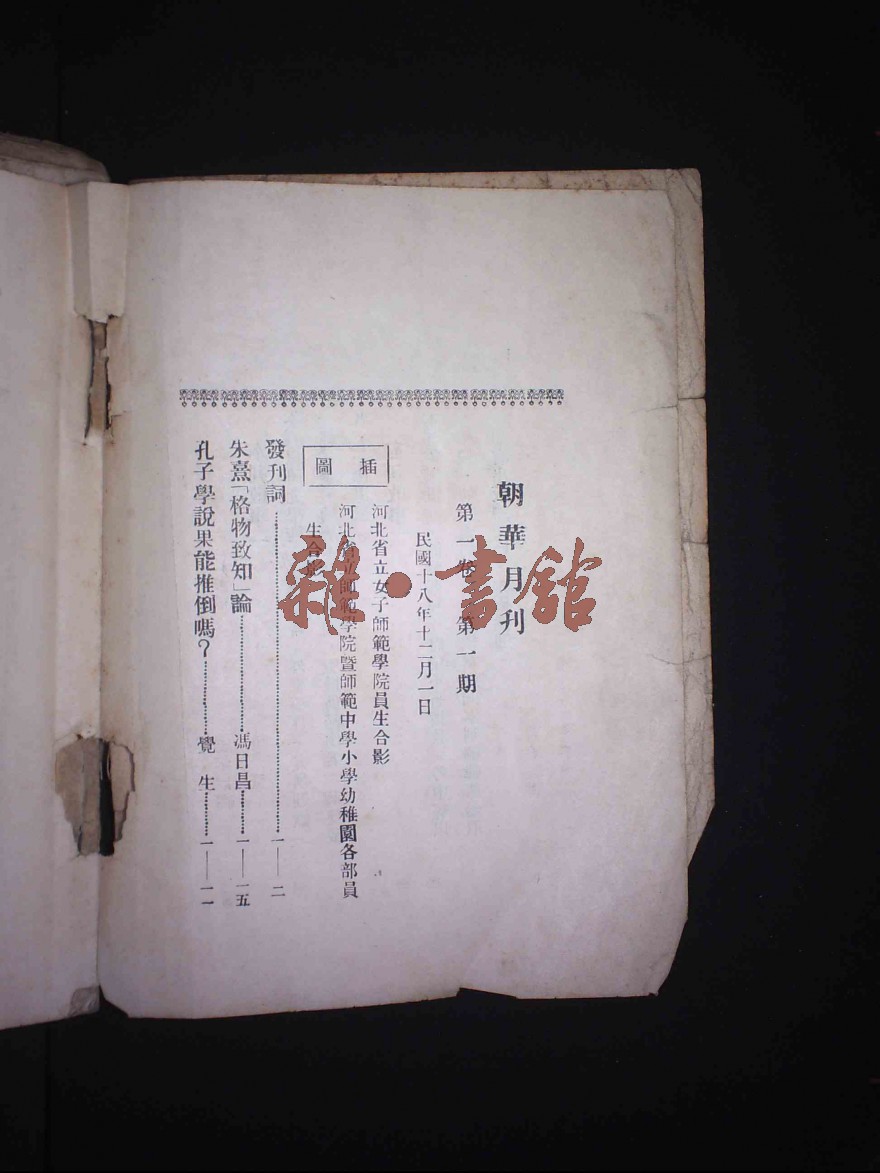 朝華月刊
第一卷 第一期
民國十八年十二月一日
插圖
河北省立女子師範學院員生合影
河北省立師範學院暨師範中學小學幼稚園各部員
生合影
發刊詞……一——二
朱熹「格物致知」論……馮日昌……一——一五
孔子學說果能推倒嗎？……覺 生……一——一一
雜·書館